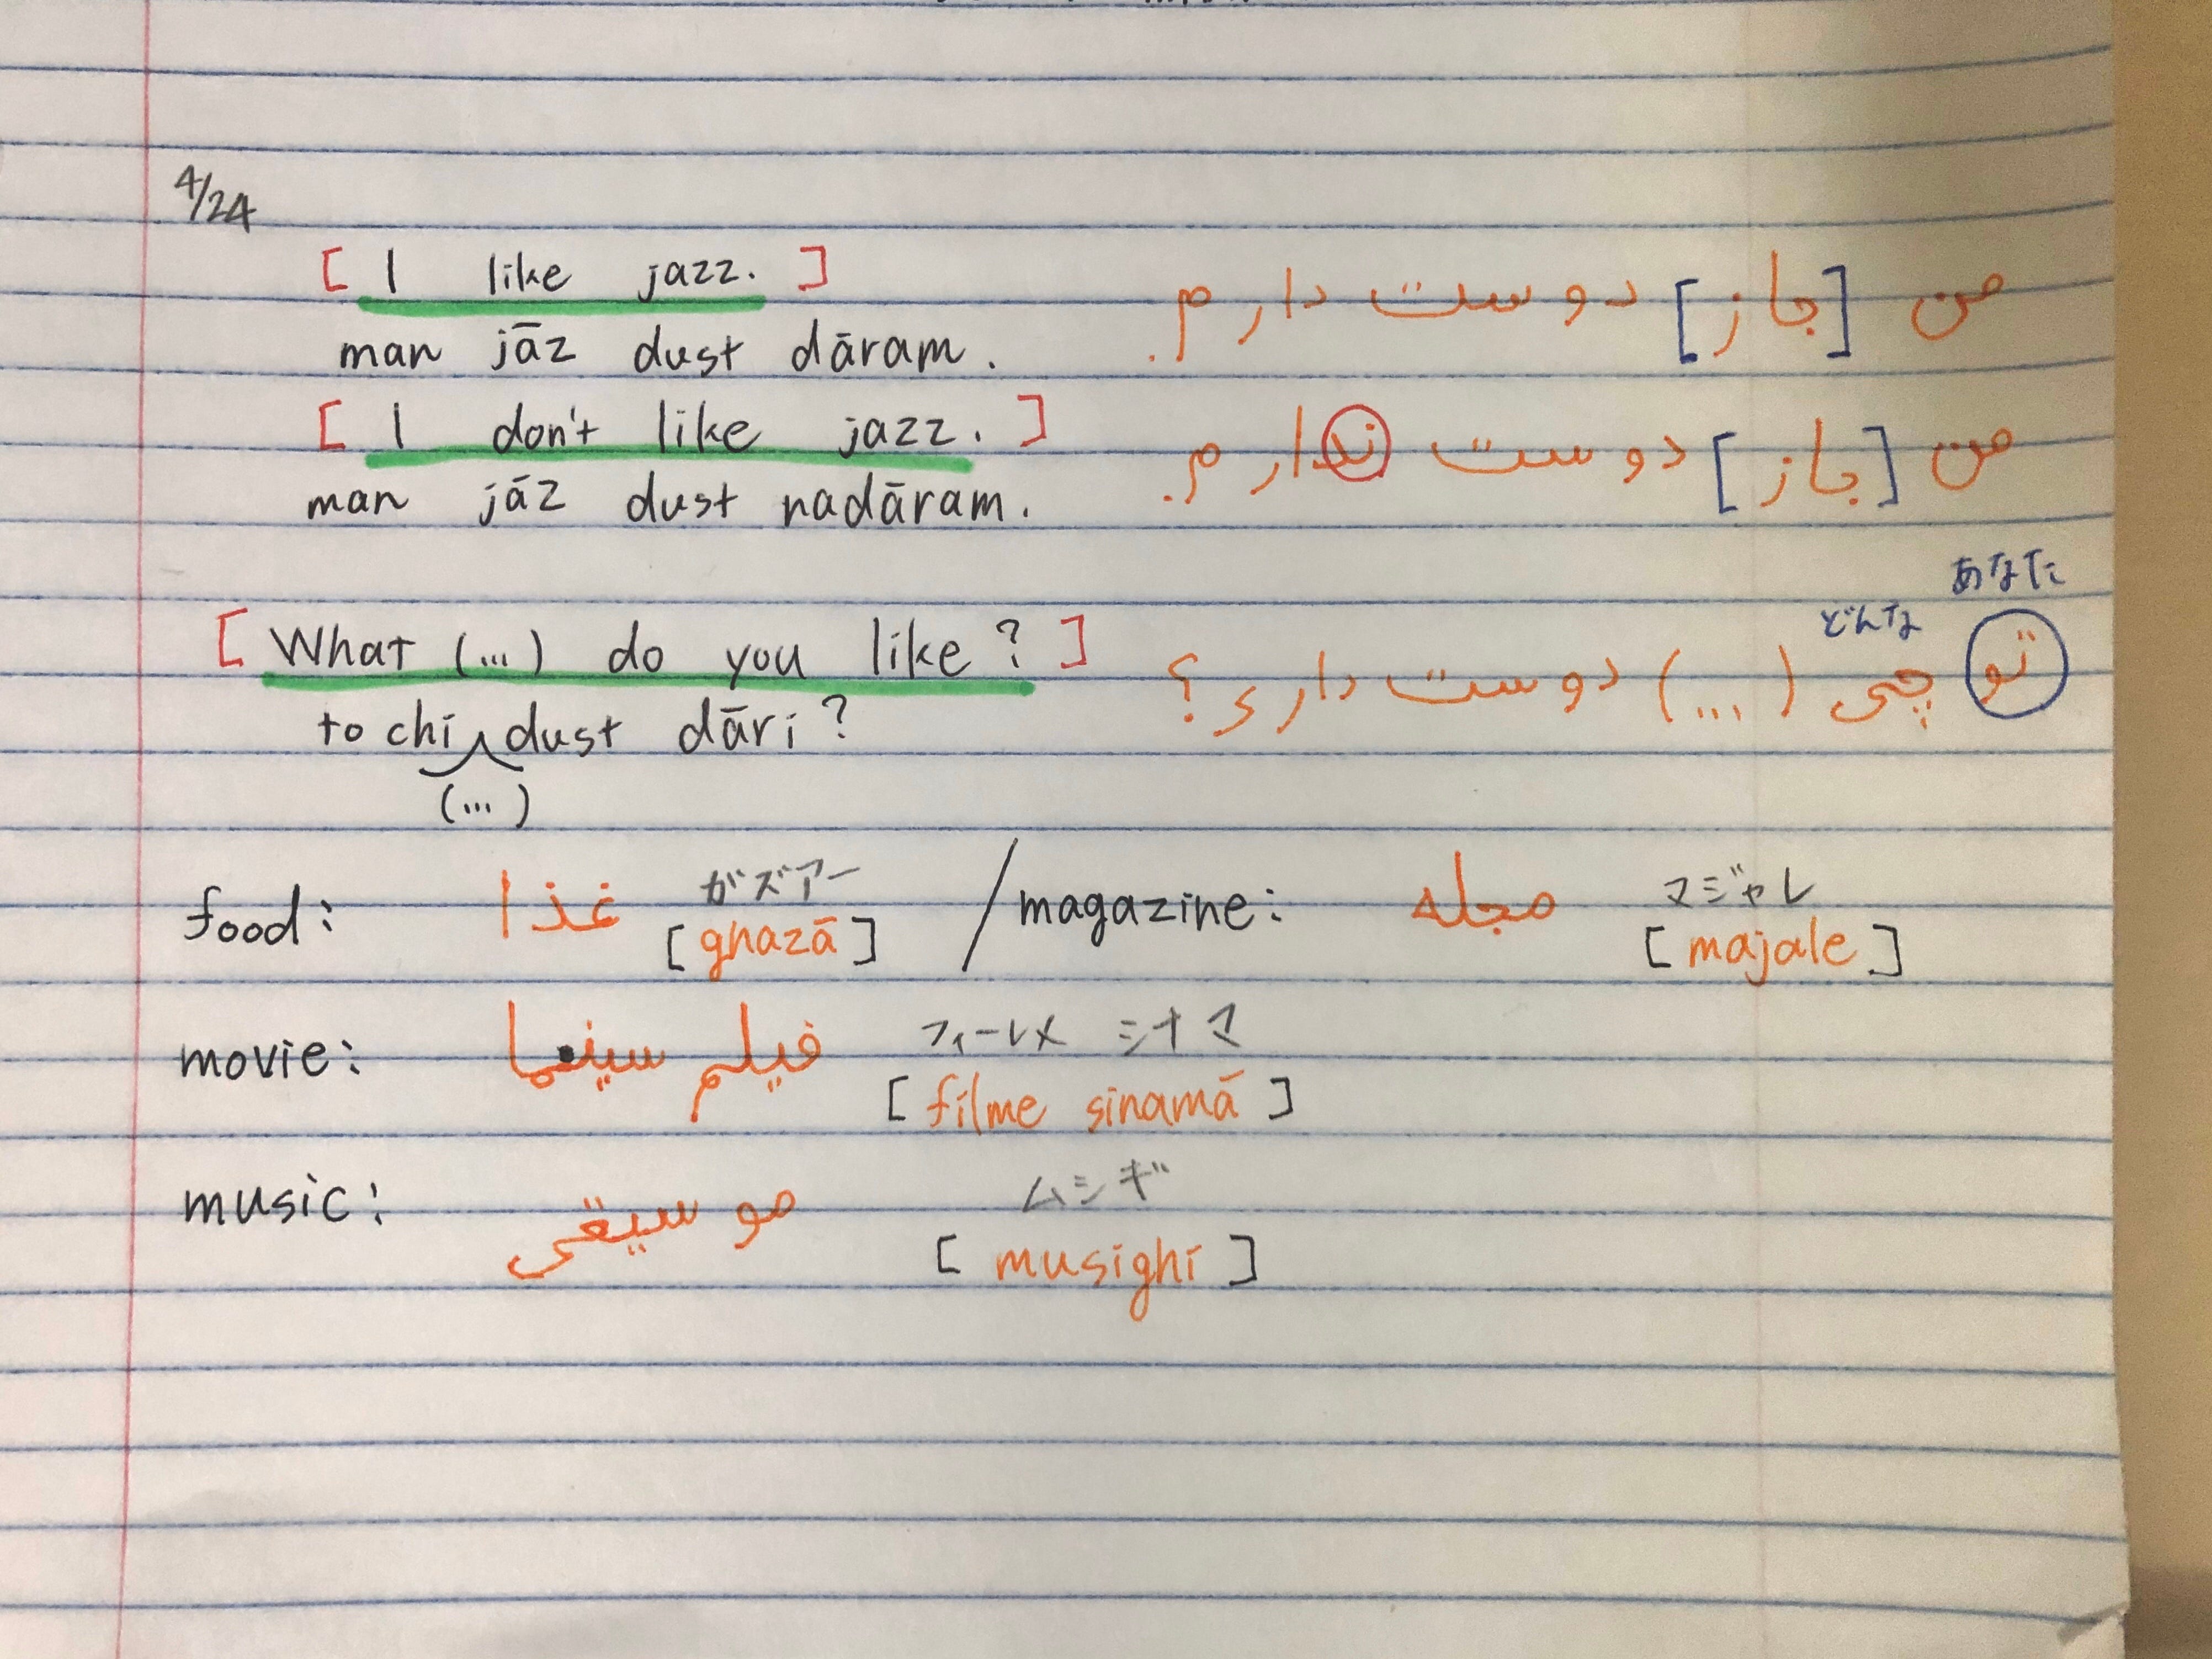 4/24
[ I like jazz. ] من [جاز] دوست دارم.
man jāz dust dāram.
[ I don't like jazz. ] من [جاز] دوست ندارم.
man jāz dust nadāram.
あなた
どんな
[ What (...) do you like? ] تو چی (...) دوست داری؟
to chi dust dāri?
(...)
ガズアー マジャレ
food: غذا [ghazā] / magazine: مجله [majale]
フィールメ シナマ
movie: فیلم سینما [filme sinamā]
ムシギ
music: موسیقی [musighi]